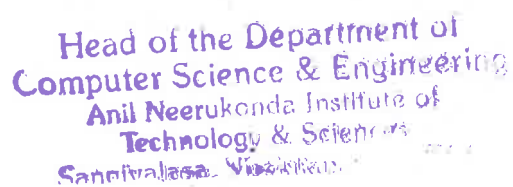 Head of the Department of
Computer Science & Engineering
Anil Neerukonda Institute of
Technology & Sciences
Sangivalasa,